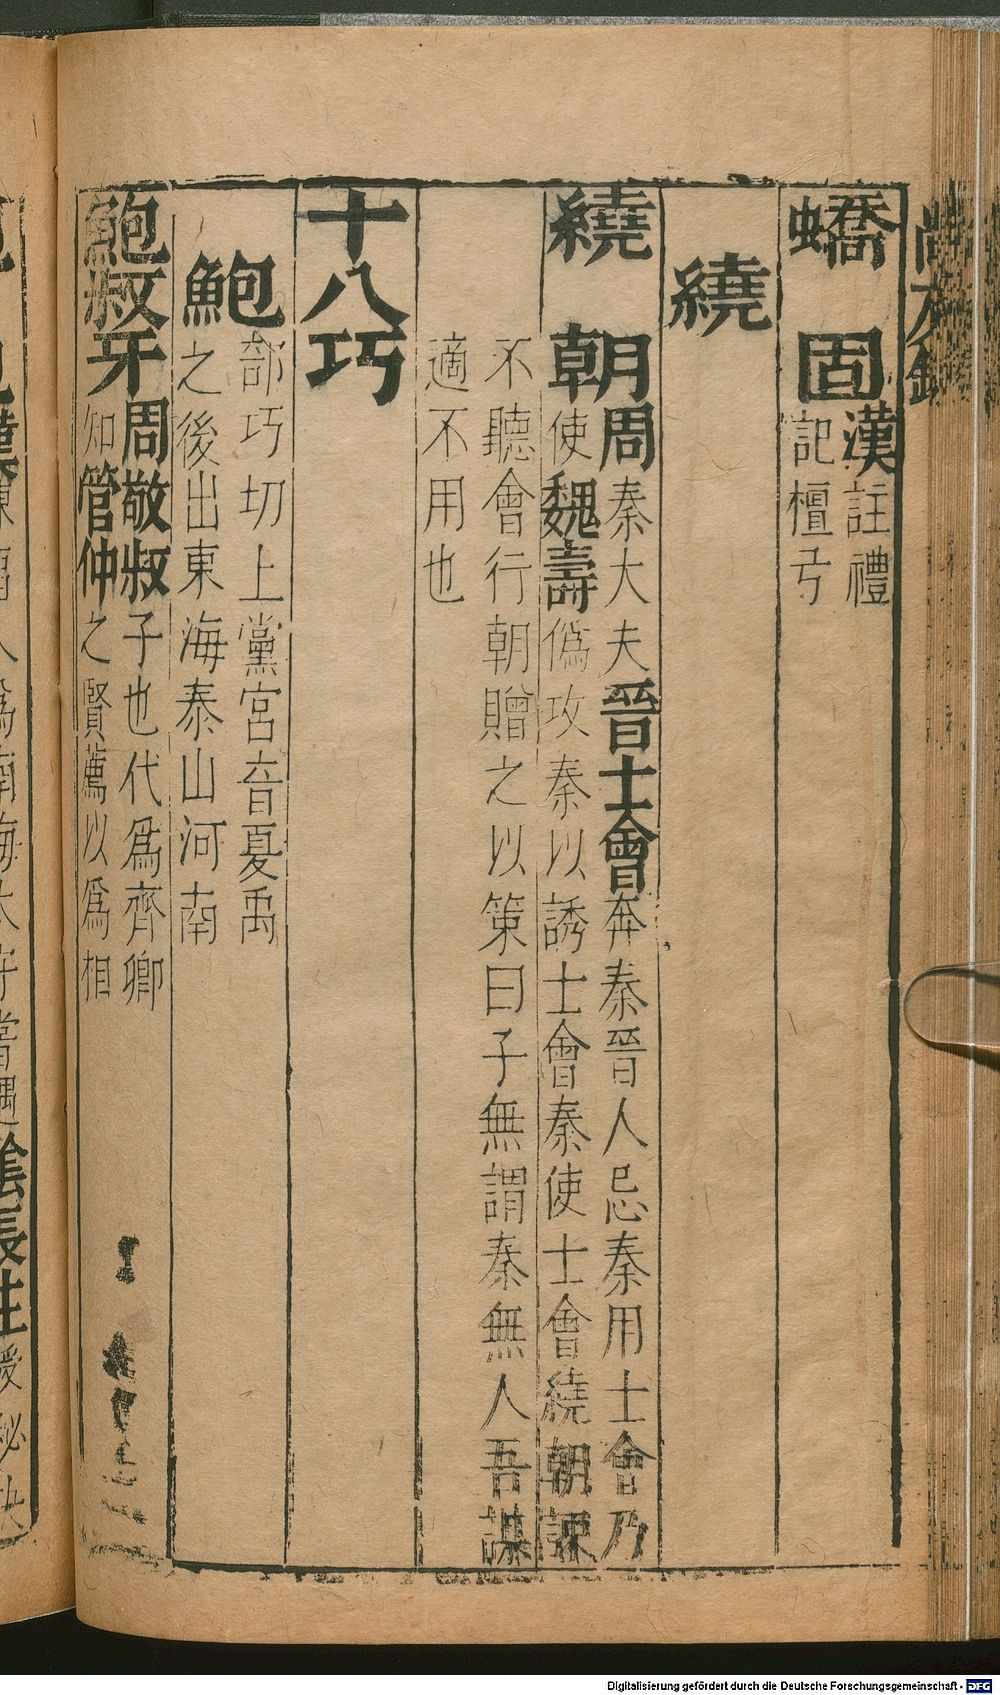 尚友錄
蟜固 漢註禮
記檀弓
繞
繞朝 周秦大夫晉士會奔秦晉人忌秦用士會乃
使魏壽偽攻秦以誘士會秦使士會繞朝諫
不聽會行朝贈之以策曰子無謂秦無人吾謀
適不用也
十八巧
鮑 部巧切上黨宮音夏禹
之後出東海泰山河南
鮑叔牙 周敬叔子也代為齊卿
知管仲之賢薦以為相
Digitalisierung gefördert durch die Deutsche Forschungsgemeinschaft - DFG